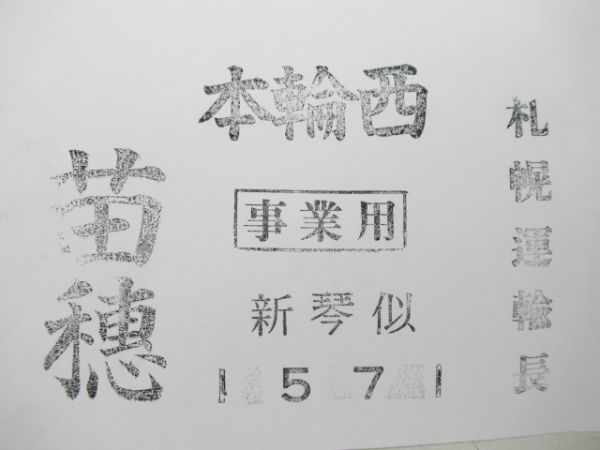 札幌運輸長
本輪西
事業用
新琴似
5 7
苗穂